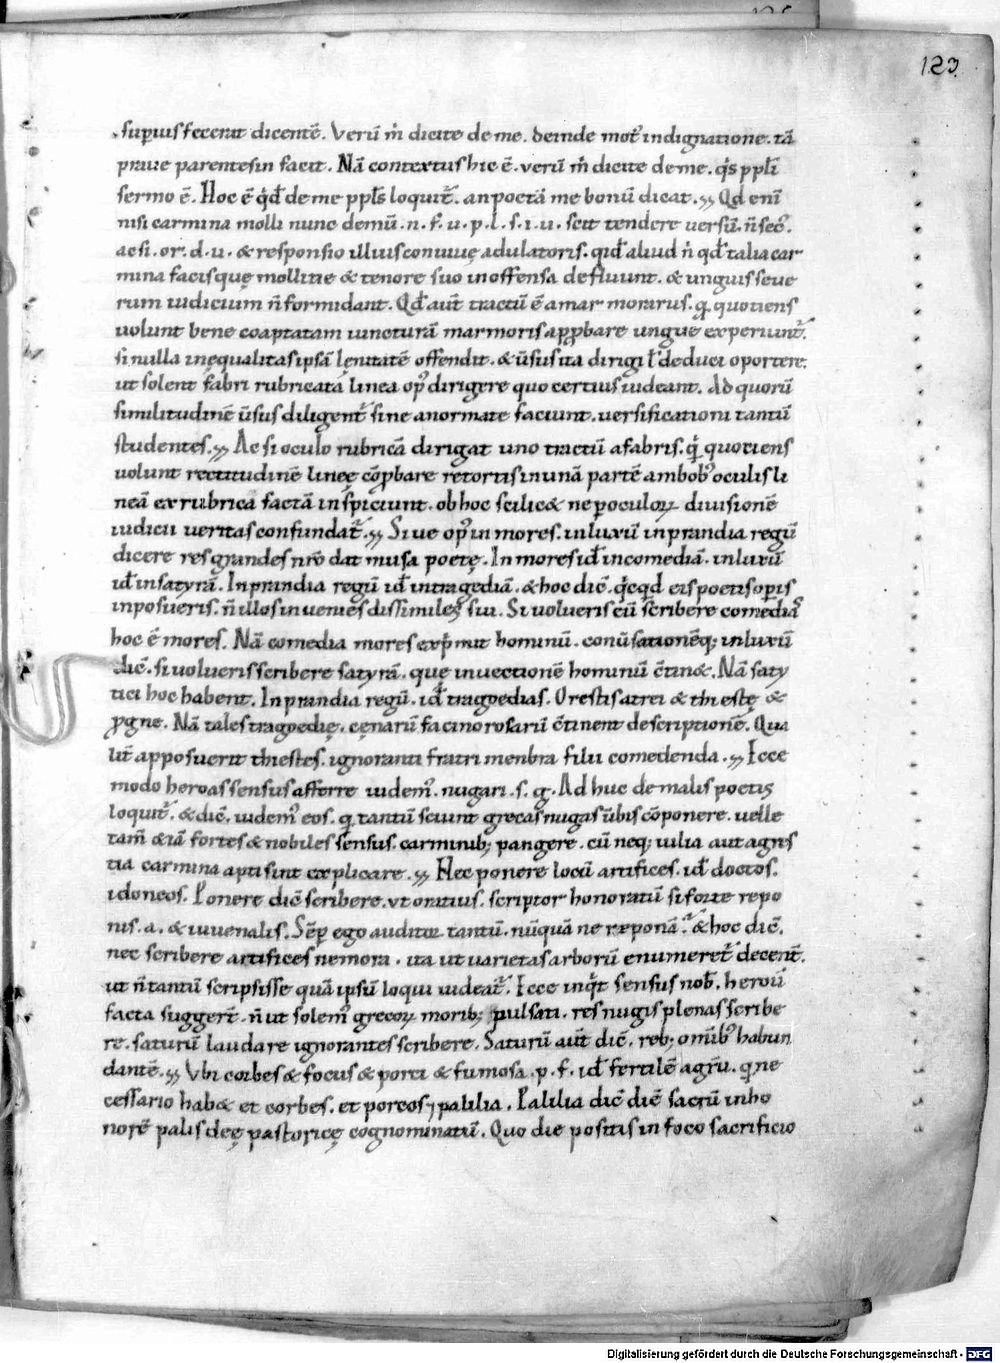 123
supius fecerat dicentē. Verū m̄ dicite de me. deinde mot᷒ indignatione. tā
praue parentesin facit. Nā contextus hic ē. verū m̄ dicite de me. qͥs ppl̄i
sermo ē. Hoc ē qͥd de me ppl̄s loquit᷒. an poetā me bonū dicat. Qd enī
nisi carmina molli nunc demū. n. f. u. p. l. s. i. u. scit tendere versū. n̄ sec᷒.
ac si. or. d. u. & responsio illius conuiuę adulatoris. qid aliud n̄ qd talia car
mina facis quę mollitie & tenore suo inoffensa defluunt. & unguis seue
rum iudicium n̄ formidant. Qd aut̄ tractū ē a mar moratis. q quotiens
uolunt bene coaptatam iuncturā marmoris appbare ungue experiunt᷒.
si nulla inęqualitas ipsā lęnitatē offendit. & ūsus ita dirigi l̄ deduci oportere.
ut solent fabri rubricatā linea op᷒ dirigere quo certius uideant. Ad quorū
similitudinē ūsus diligent᷒ sine anormate faciunt. versificationi tantū
studentes. Ac si oculo rubricā dirigat uno tractū a fabris. q quotiens
uolunt rectitudinē lineę cōpbare retortis in unā partē ambob᷒ oculis li
neā ex rubrica factā inspiciunt. ob hoc scilic& ne p oculoꝝ diuisionē
iudicii ueritas confundat᷒. Siue op᷒ in mores. in luxū in prandia regū
dicere res grandes nr̄o dat musa poetę. In mores id in comediā. in luxū
id in satyrā. In prandia regū id in tragediā. & hoc dic̄. qͥcqd eis poetis opis
inposueris. n̄ illos inuenies dissimiles sui. Si volueris eū scribere comediā
hoc ē mores. Nā comedia mores exp̄mit hominū. conūsationēq;. in luxū
dic̄. si uolueris scribere satyrā. quę inuectionē hominū c̄tin&. Nā saty
rici hoc habent. In prandia regū. id tragoedias. Orestis atrei & thiestę &
pgne. Nā tales tragoedię. cęnarū facinorosarū c̄tinent descriptionē. Qua
lit̄ apposuerit thiestes. ignoranti fratri menbra filii comedenda. Ecce
modo heroas sensus afferre uidem᷒. nugari. s. g. Ad huc de malis poetis
loquit᷒. & dic̄. uidem᷒ eos. q tantū sciunt grecas nugas ūbis cōponere. uelle
tam̄ & iā fortes & nobiles sensus. carminib; pangere. cū neq; uilia aut agres
tia carmina apti sint explicare. Nec ponere locū artifices. id doctos.
idoneos. Ponere dic̄ scribere. vt oratius. scriptor honoratū si forte repo
nis. a. & iuuenalis. Sēp ego auditor tantū. nūquā ne reponā. & hoc dic̄.
nec scribere artifices nemora. ita ut uarietas arborū enumeret᷒ decent̄.
ut n̄ tantū scripsisse quā ipsū loqui uideat᷒. Ecce inqͥt sensus nob᷒. heroū
facta suggert̄. n̄ ut solem᷒ grecoꝝ morib; pulsati. res nugis plenas scribe
re. saturū laudare ignorantes scribere. Saturū aut̄ dic̄. reb; omīb᷒ habun
dantē. Vbi corbes & focus & porci & fumosa. p. f. id fertilē agrū. q ne
cessario hab& et corbes. et porcos ⁊ palilia. Palilia dic̄ diē sacrū in ho
norē palis deę pastoricę cognominatū. Quo die positis in foco sacrificio
Digitalisierung gefördert durch die Deutsche Forschungsgemeinschaft - DFG